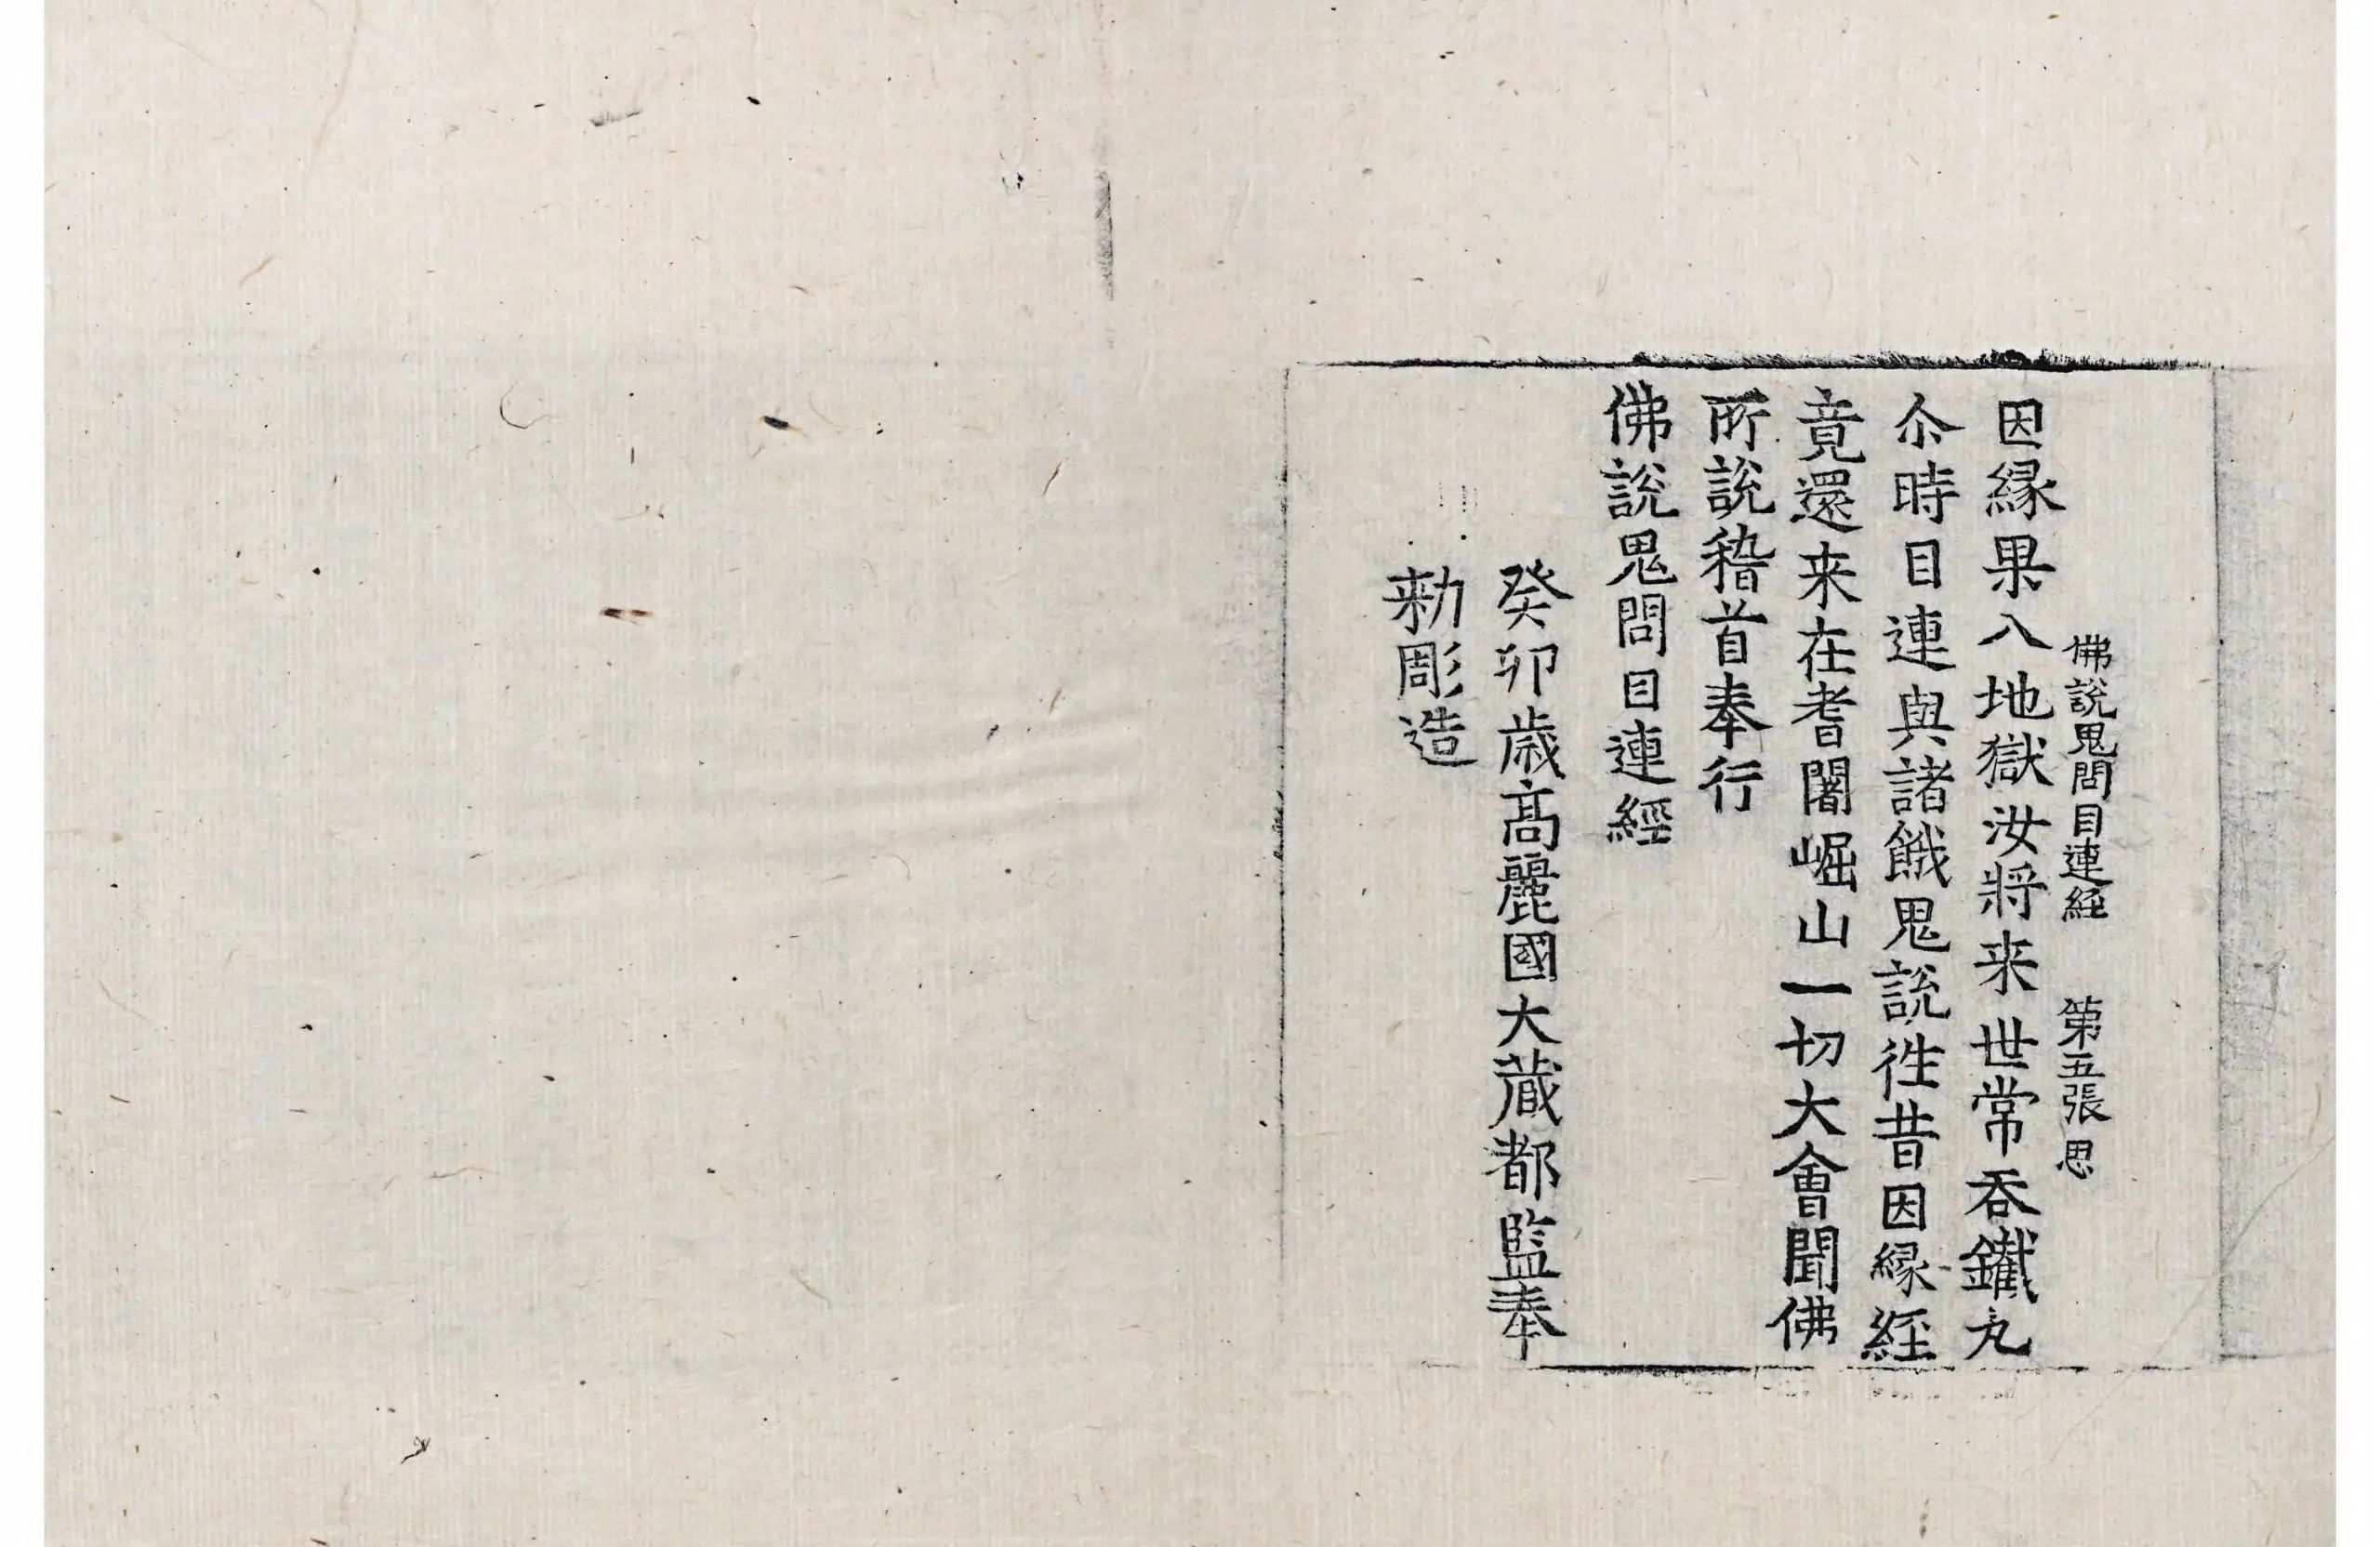 佛說鬼問目連經 第五張 思
因緣果入地獄汝將来世常吞鐵丸
尒時目連與諸餓鬼說徃昔因緣經
竟還来在耆闍崛山一切大會聞佛
所說稽首奉行
佛說鬼問目連經
癸卯歲髙麗國大藏都監奉
勑彫造